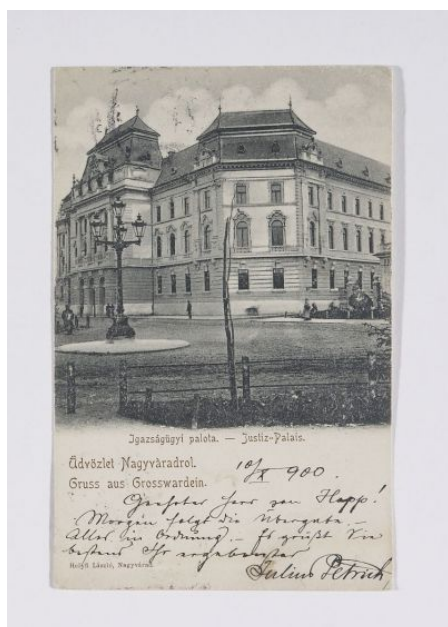 Igazságügyi palota. — Justiz-Palais.
Üdvözlet Nagyváradrol.
Gruss aus Grosswardein.
10/X 900.
Geehrter Herr von Happ!
Morgen folgt die Übergabe. –
Alles in Ordnung. – Es grüßt Sie
bestens Ihr ergebenster
Julius Petrich
Helyfi László, Nagyvárad.